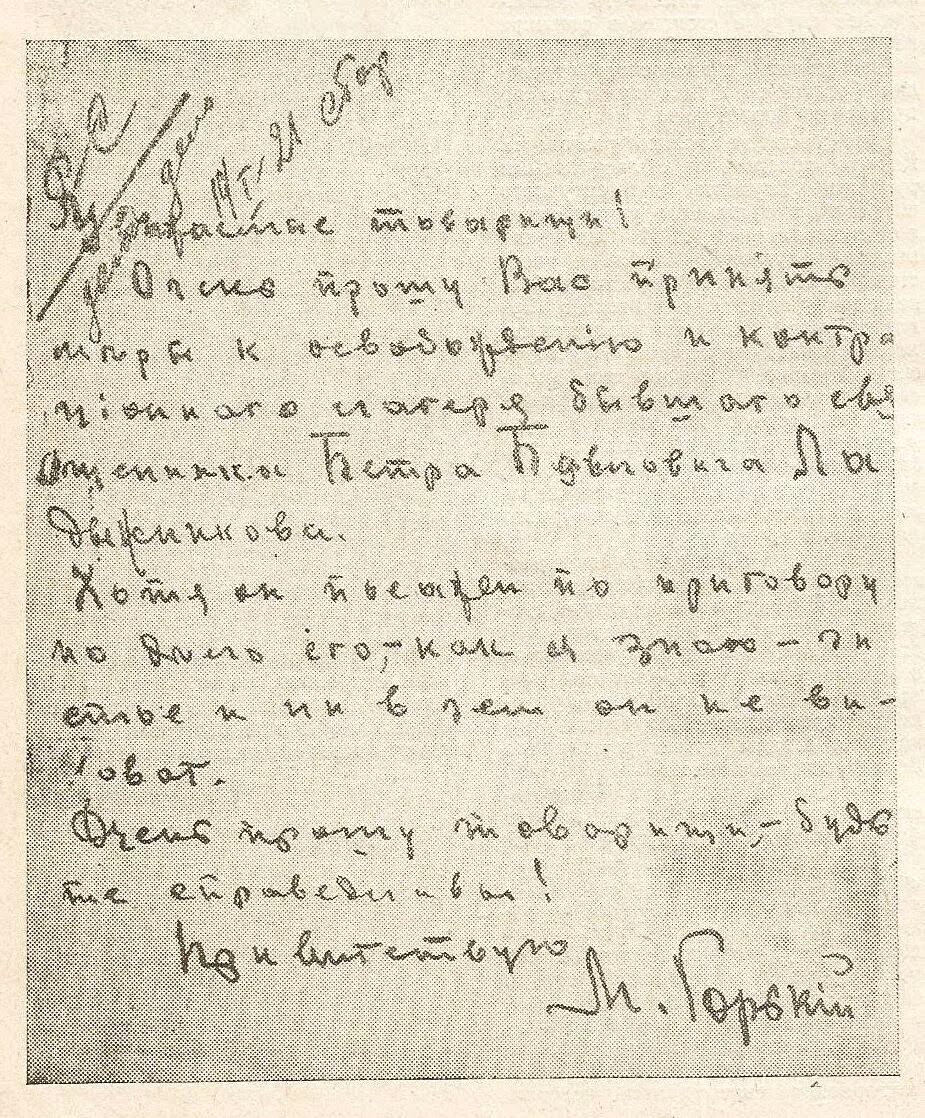 Уважаемые товарищи!
Очень прошу Вас принять
меры к освобождению и контра
ціонного лагеря бывшаго свя
щенника Петра Павловича Ла
дыжникова.
Хотя он посажен по приговору
но дело его,- как я знаю - чи
стое и ни в чем он не ви-
новат.
Очень прошу товарищи,- будь
те справедливы!
Приветствую
М. Горькій